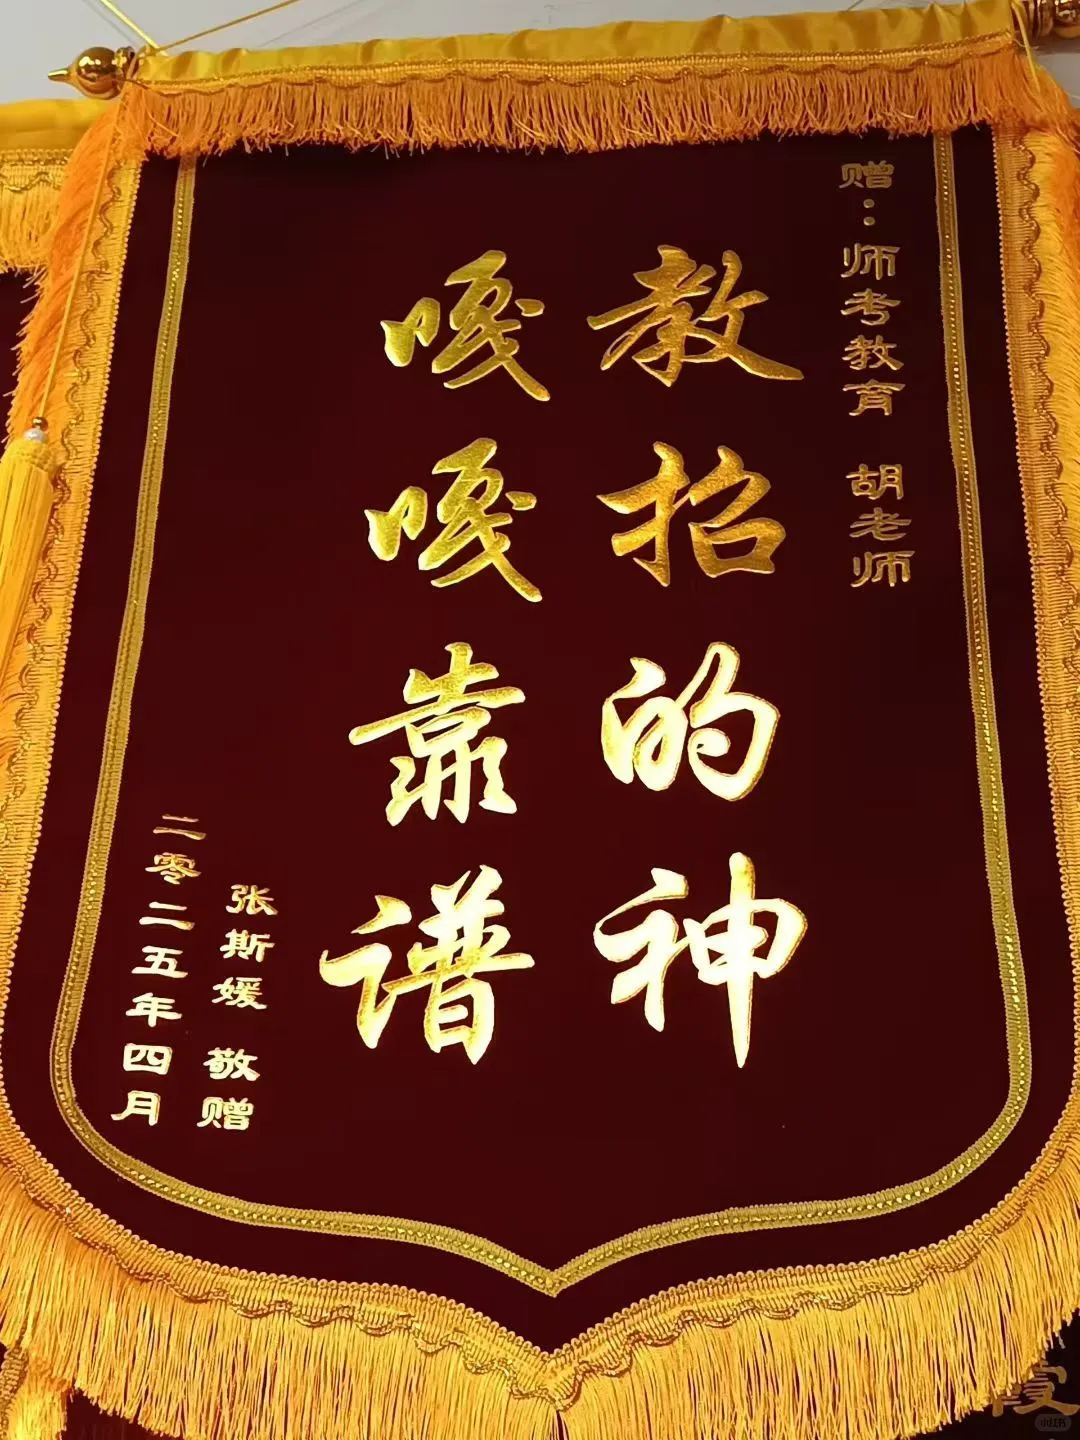 赠：师考教育 胡老师
教招的神
嘎嘎靠谱
张斯媛 敬赠
二零二五年四月
霞
小红书